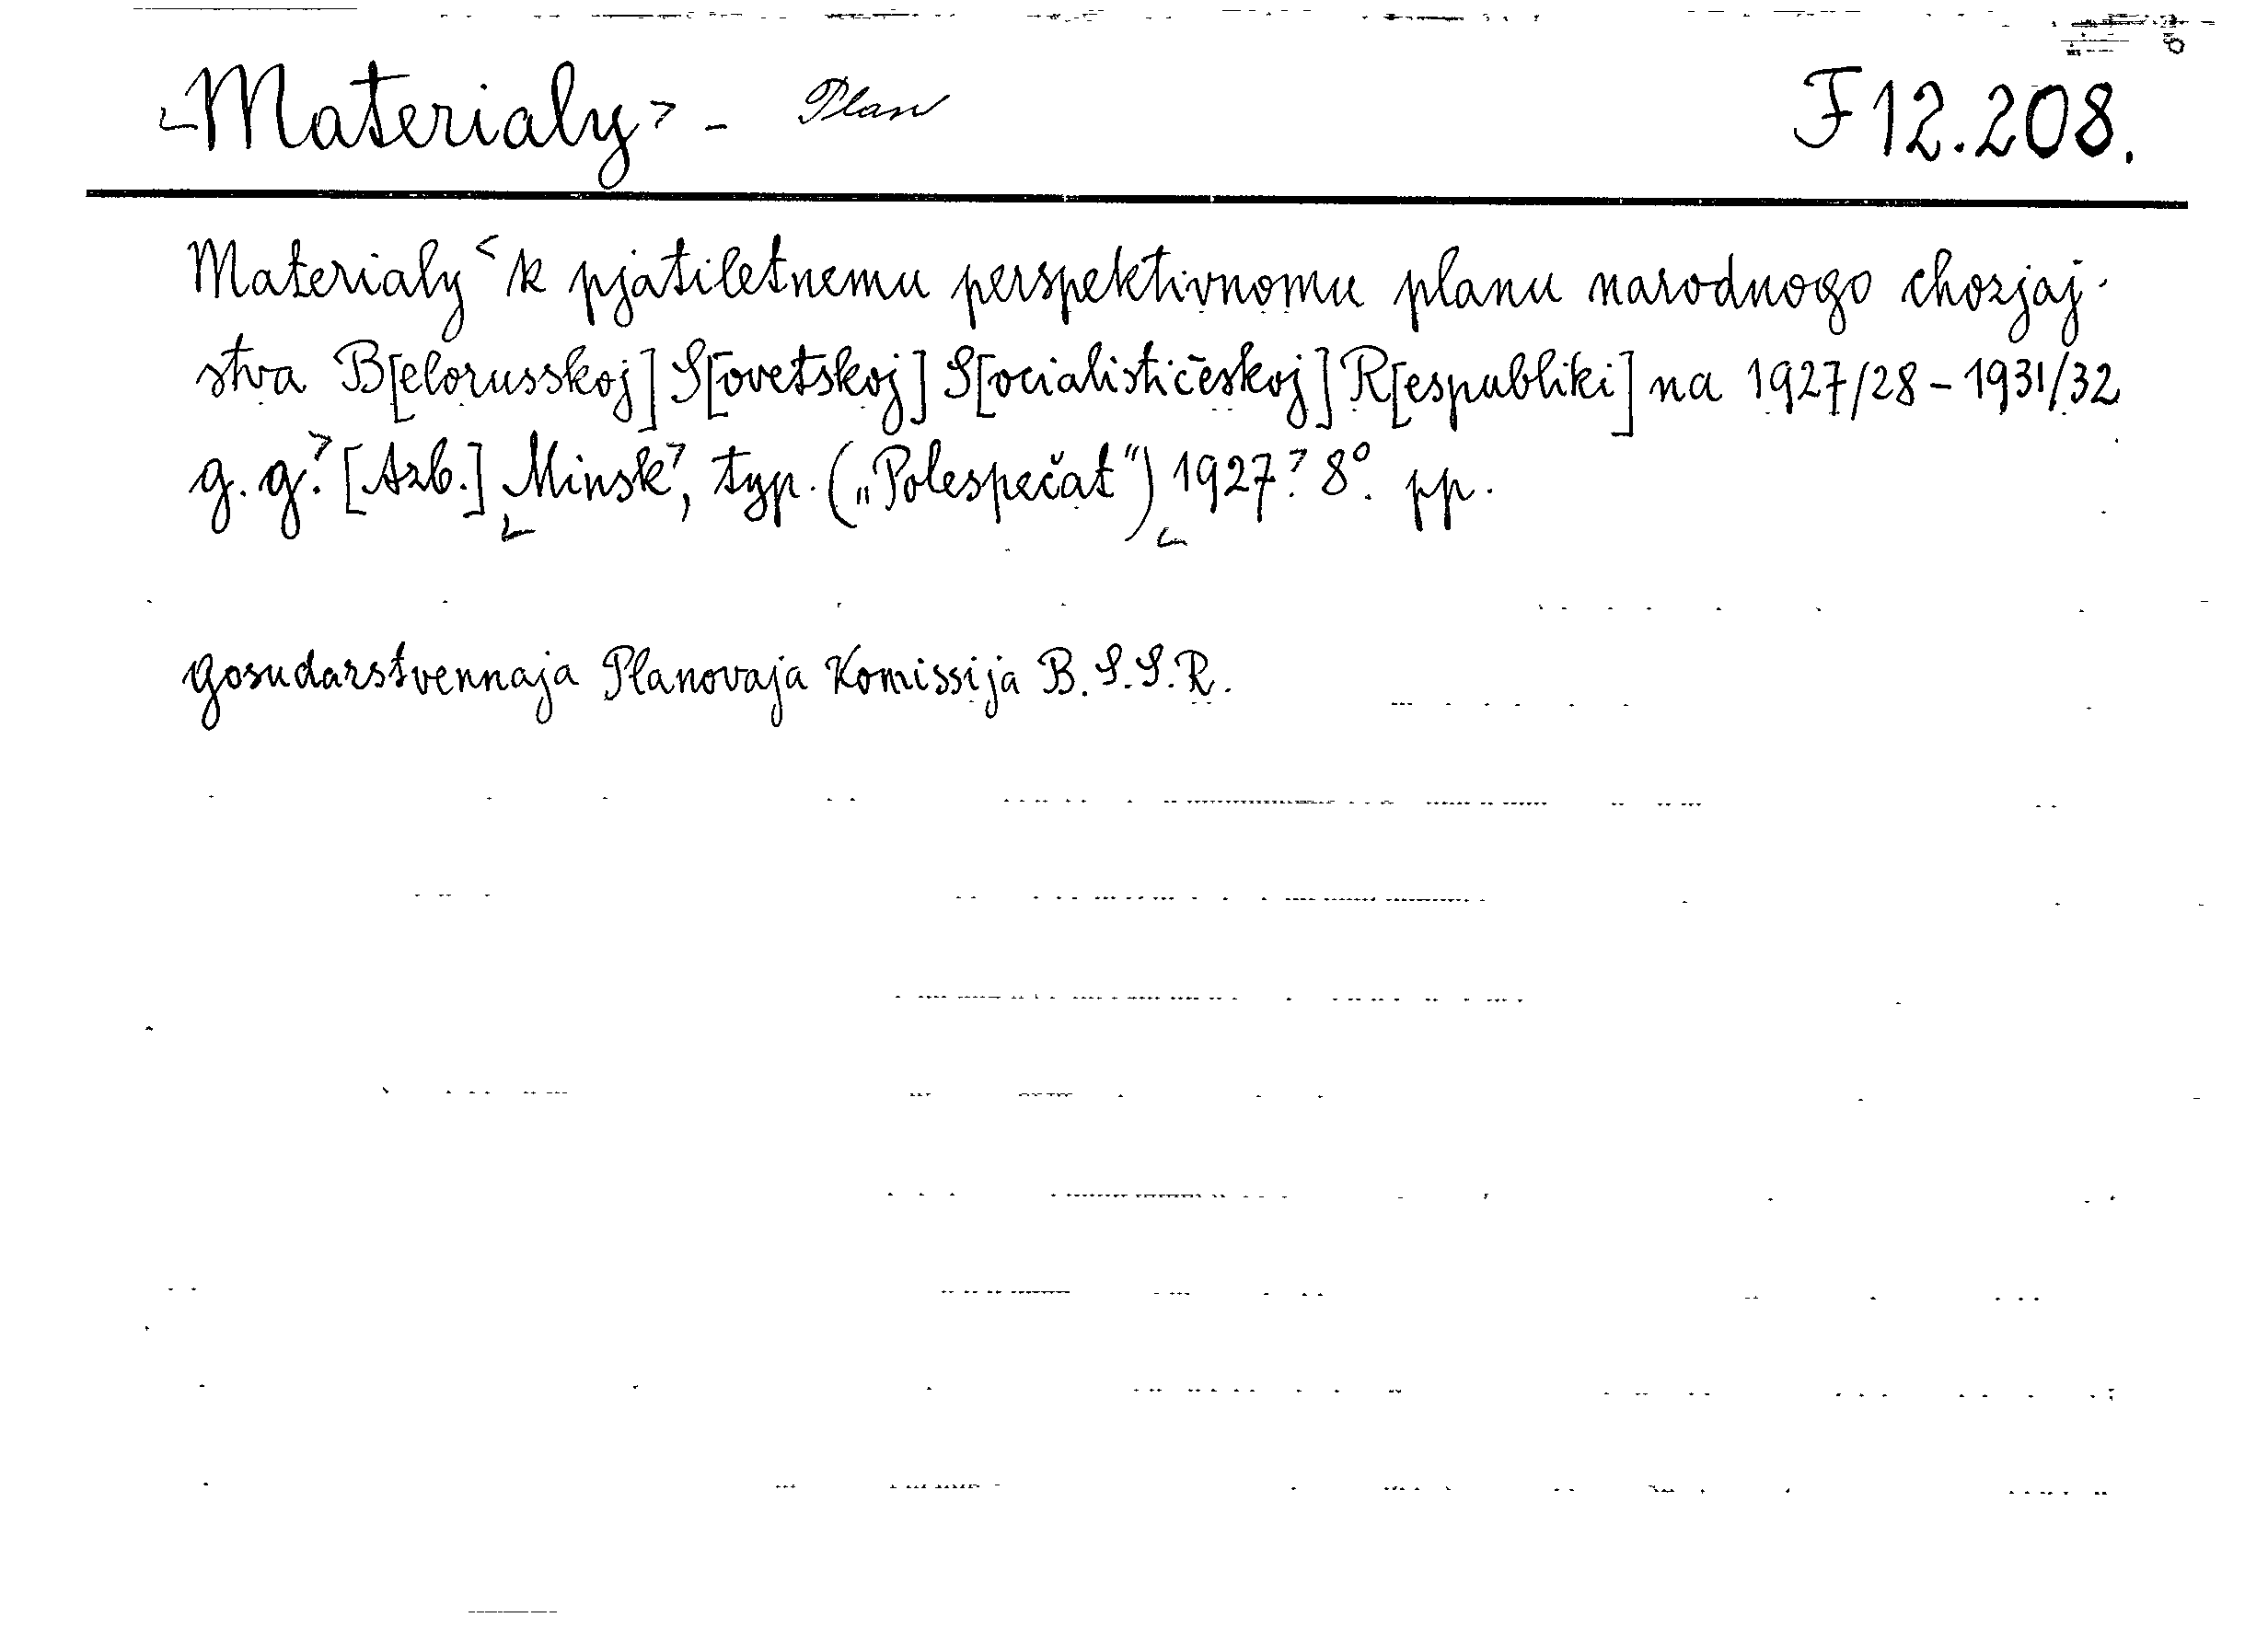 <Materialy> - Plan F 12.208.
Materialy < k pjatiletnemu perspektivnomu planu narodnogo chozjaj-
stva B[elorusskoj] S[ovetskoj] S[ocialističeskoj] R[espubliki] na 1927/28 - 1931/32
g. g.> [Azb.] <Minsk>, typ. („Polespečat“) <1927>. 8°. pp.
Gosudarstvennaja Planovaja Komissija B. S. S. R.